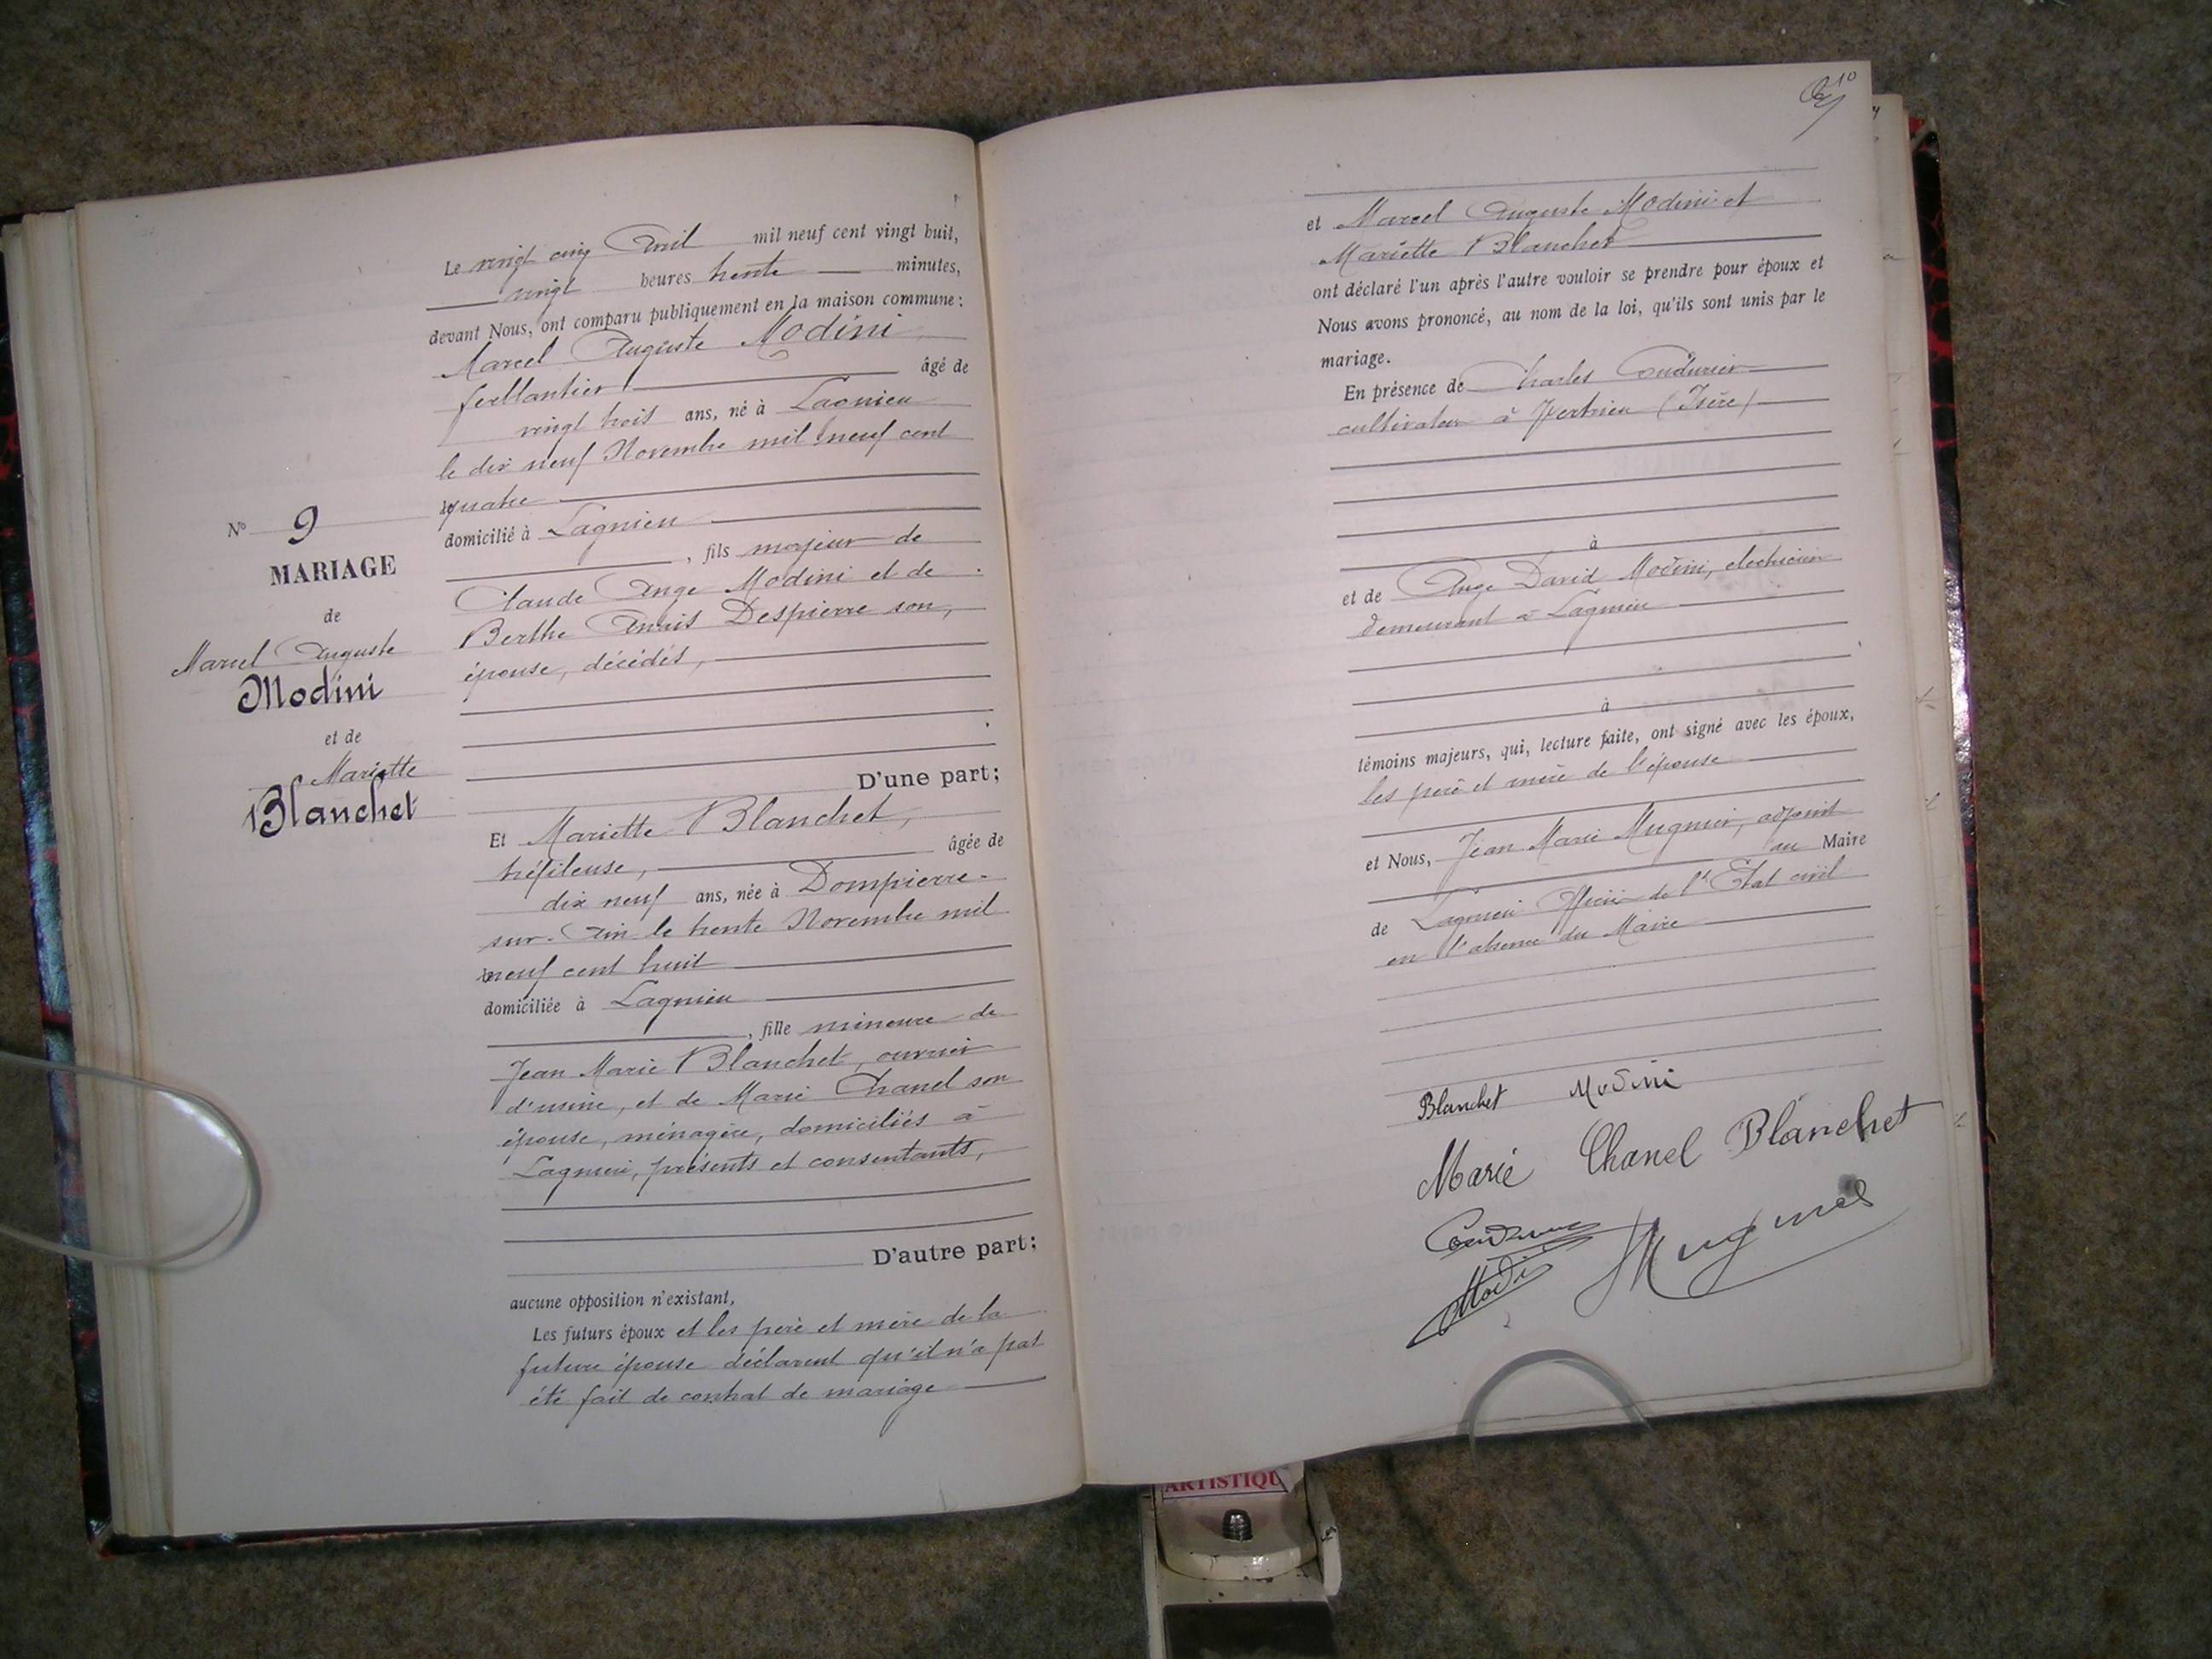 Le vingt cinq Avril mil neuf cent vingt huit,
vingt heures trente minutes,
devant Nous, ont comparu publiquement en la maison commune :
Marcel Auguste Modini
ferblantier âgé de
vingt trois ans, né à Lagnieu
le dix neuf Novembre mil neuf cent
quatre
domicilié à Lagnieu
, fils majeur de
Claude Ange Modini et de
Berthe Anaïs Despierre son
épouse, décédés,
D'une part;
N° 9
MARIAGE
de
Marcel Auguste
Modini
et de
Mariette
Blanchet
Et Mariette Blanchet,
tréfileuse, âgée de
dix neuf ans, née à Dompierre-
sur-Ain le trente Novembre mil
neuf cent huit
domiciliée à Lagnieu
, fille mineure de
Jean Marie Blanchet, ouvrier
d'usine, et de Marie Chanel son
épouse, ménagère, domiciliés à
Lagnieu, présents et consentants,
D'autre part;
aucune opposition n'existant,
Les futurs époux et les père et mère de la
future épouse déclarent qu'il n'a pas
été fait de contrat de mariage
10
et Marcel Auguste Modini et
Mariette Blanchet
ont déclaré l'un après l'autre vouloir se prendre pour époux et
Nous avons prononcé, au nom de la loi, qu'ils sont unis par le
mariage.
En présence de Charles Coudurier
cultivateur à Vertrieu (Isère)
à
et de Ange David Modini, electricien
demeurant à Lagnieu
à
témoins majeurs, qui, lecture faite, ont signé avec les époux,
les père et mère de l'épouse
et Nous, Jean Marie Mugnier, adjoint
au Maire
de Lagnieu Officier de l'Etat civil
en l'absence du Maire
Blanchet Modini
Marie Chanel Blanchet
Modi
ARTISTIQU